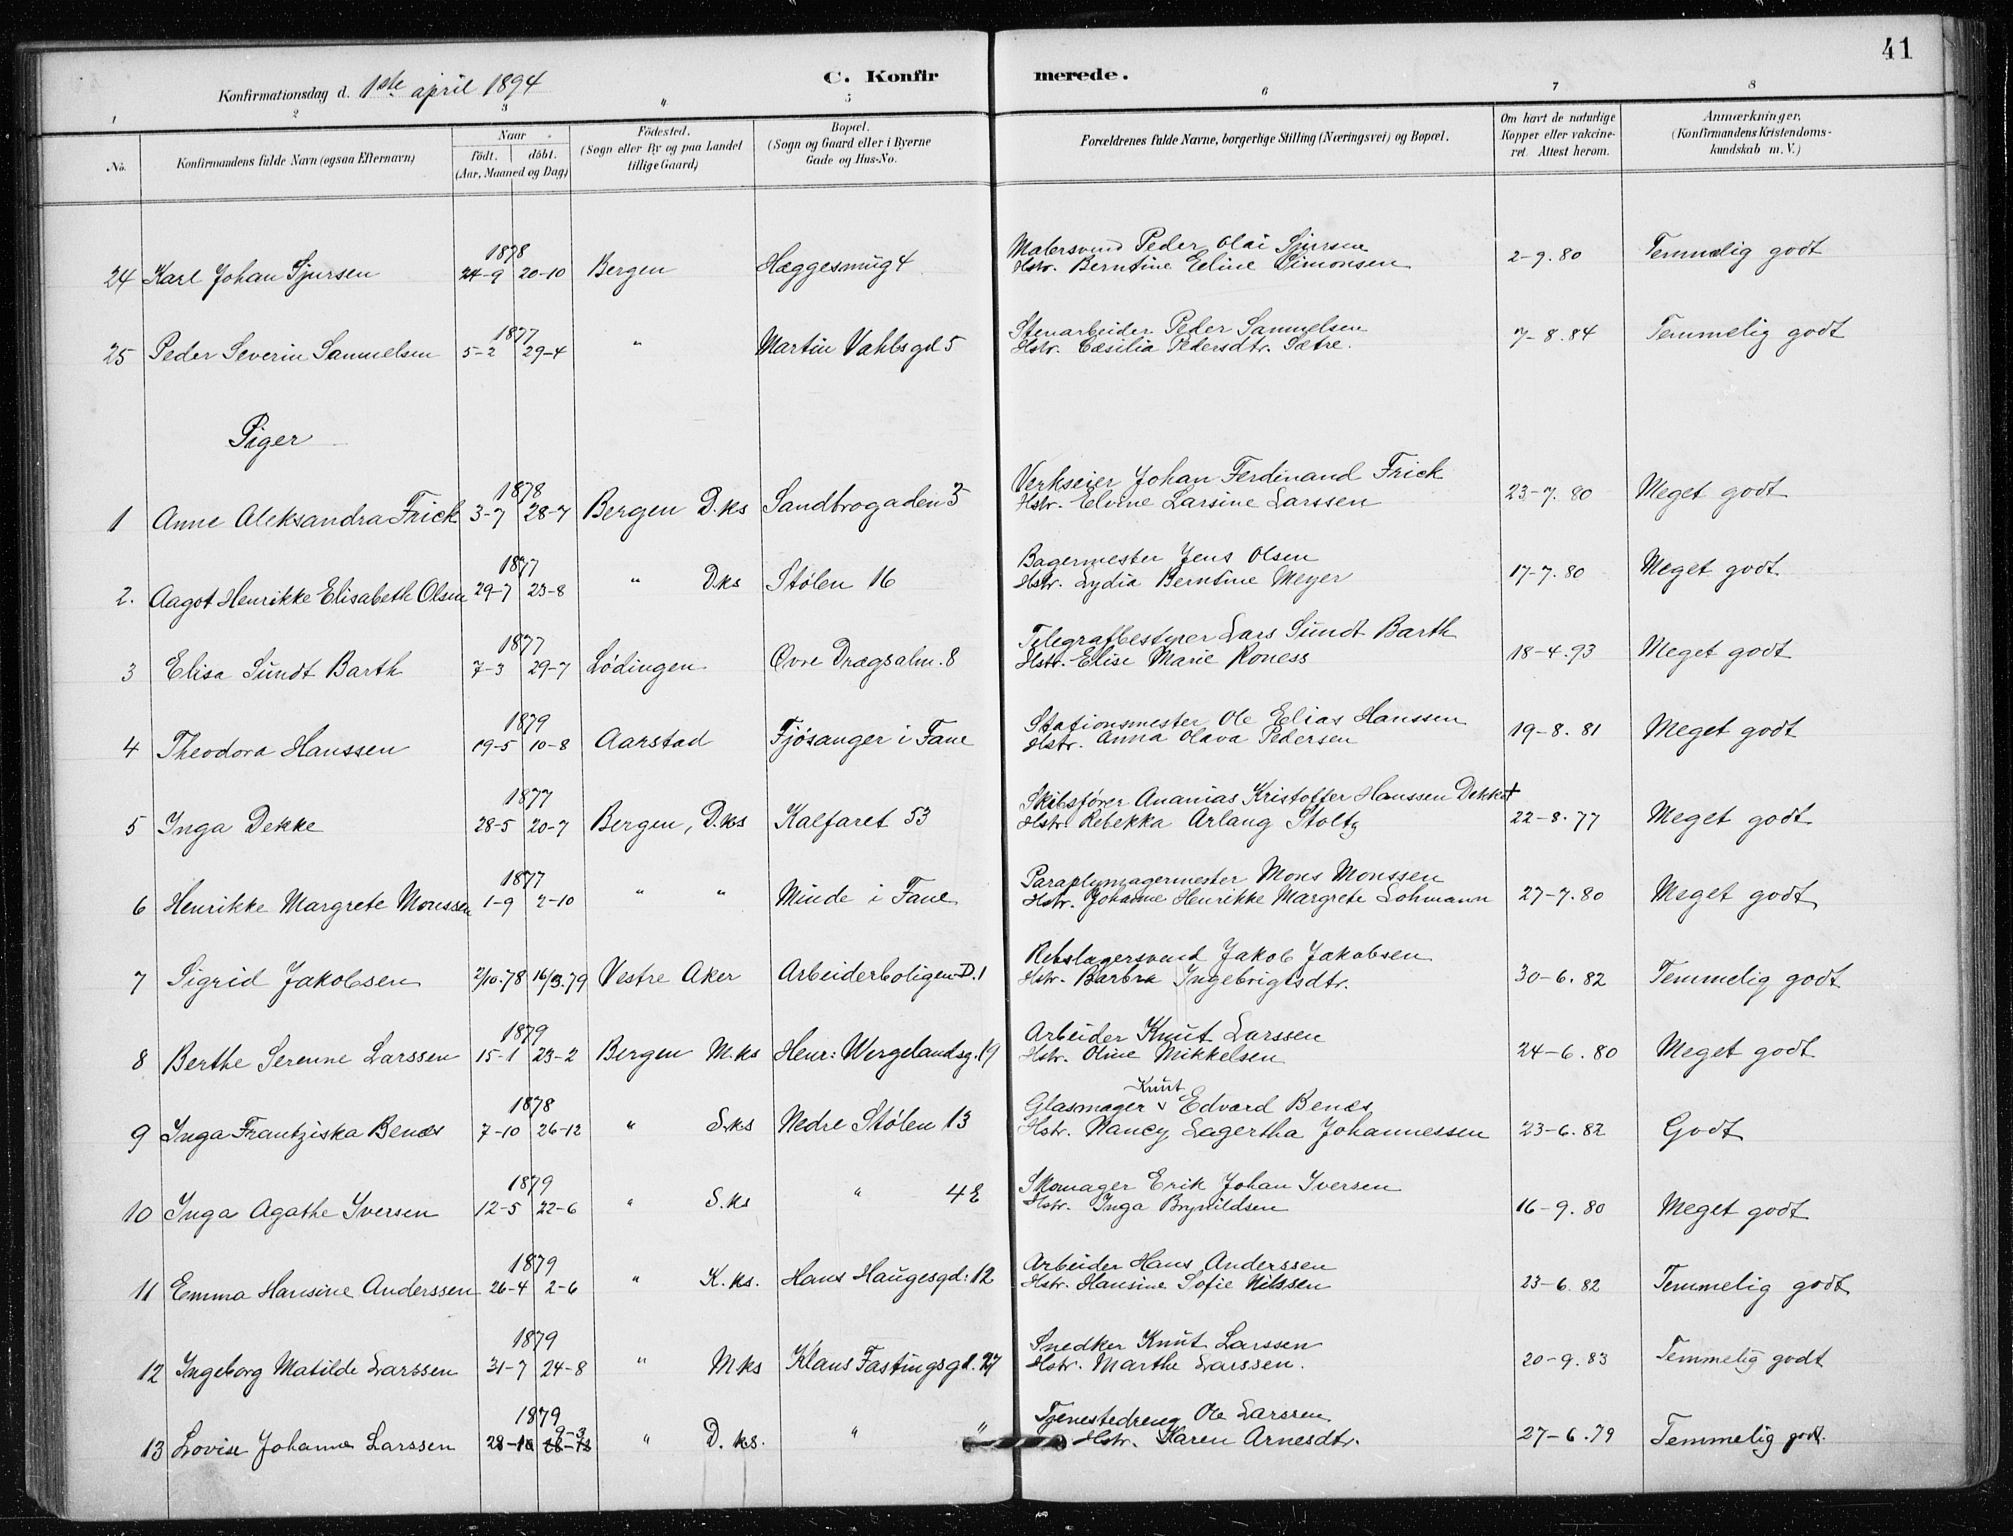 41
Konfirmationsdag d. 1ste april 1894
C. Konfirmerede.
1 2 3 4 5 6 7 8
No. Konfirmandens fulde Navn (ogsaa Efternavn) Naar født. døbt. (Aar, Maaned og Dag) Födested. (Sogn eller By og paa Landet tillige Gaard) Bopæl. (Sogn og Gaard eller i Byerne Gade og Hus-No. Forældrenes fulde Navne, borgerlige Stilling (Næringsvei) og Bopæl. Om havt de naturlige Kopper eller vakcineret. Attest herom. Anmærkninger, (Konfirmandens Kristendomskundskab m. V.)
24 Karl Johan Sjursen 1878 24-9 20-10 Bergen Hæggesmug 4 Malersvend Peder Olai Sjursen Hstr. Berntine Eeline Simonsen 2-9.80 Temmelig godt
25 Peder Severin Samuelsen 1877 5-2 29-4 " Martin Vahlsgd 5 Stenarbeider Peder Samuelsen Hstr. Cæsilia Pedersdtr. Sætre. 7-8.84 Temmelig godt
Piger
1 Anne Aleksandra Frick 1878 3-7 28-7 Bergen D.ks Sandbrogaden 3 Verkseier Johan Ferdinand Frick Hstr. Elvine Larsine Larssen 23-7.80 Meget godt
2. Aagot Henrikke Elisabeth Olsen 1877 29-7 23-8 " D.ks Stølen 16 Bagermester Jens Olsen Hstr. Lydia Berntine Meyer 17-7.80 Meget godt
3 Elisa Sundt Barth 1877 7-3 29-7 Lødingen Øvre Drægsalm. 8 Telegrafbestyrer Lars Sundt Barth Hstr. Elise Marie Roness 18-4.93 Meget godt
4 Theodora Hanssen 1879 19-5 10-8 Aarstad Fjøsanger i Fane Stationsmester Ole Elias Hanssen Hstr. Anna Olava Pedersen 19-8.81 Meget godt
5 Inga Dekke 1877 28-5 20-7 Bergen, D.ks Kalfaret 53 Skibsfører Ananias Kristoffer Hanssen Dekke† Hstr. Rebekka Arlang Stoltz 22-8.77 Meget godt
6 Henrikke Margrete Monssen 1877 1-9 2-10 " " Minde i Fane Paraplymagermester Mons Monssen Hstr. Johanne Henrikke Margrete Lohmann 27-7.80 Meget godt
7 Sigrid Jakobsen 2/10.78 16/3.79 Vestre Aker Arbeiderboligen D.1 Rebslagersvend Jakob Jakobsen Hstr. Barbra Ingebrigtsdtr. 30-6.82 Temmelig godt
8 Berthe Serenne Larssen 1879 15-1 23-2 Bergen M.ks Henr: Wergelandsg. 19 Arbeider Knut Larssen Hstr. Oline Mikkelsen 24-6.80 Meget godt
9 Inga Frantziska Benæs 1878 7-10 26-12 " S.ks Nedre Stølen 13 Glasmager Knut Edvard Benæs Hstr. Nancy Lagertha Johannessen 23-6.82 Godt
10 Inga Agathe Iversen 1879 12-5 22-6 " S.ks " 4E Skomager Erik Johan Iversen Hstr. Inga Brynildsen 16-9.80 Meget godt
11 Emma Hansine Anderssen 1879 26-4 2-6 " K.ks. Hans Haugesgd: 12 Arbeider Hans Anderssen Hstr. Hansine Sofie Nilssen 23-6.82 Temmelig godt
12 Ingeborg Matilde Larssen 1879 31-7 24-8 " M.ks Klaus Fastingsgd. 27 Snedker Knut Larssen Hstr. Marthe Larssen. 20-9.83 Temmelig godt
13 Lovise Johanne Larssen 1879 9-3 " D.ks. " " Tjenestedreng Ole Larssen Hstr. Karen Arnesdtr. 27-6.79 Temmelig godt.